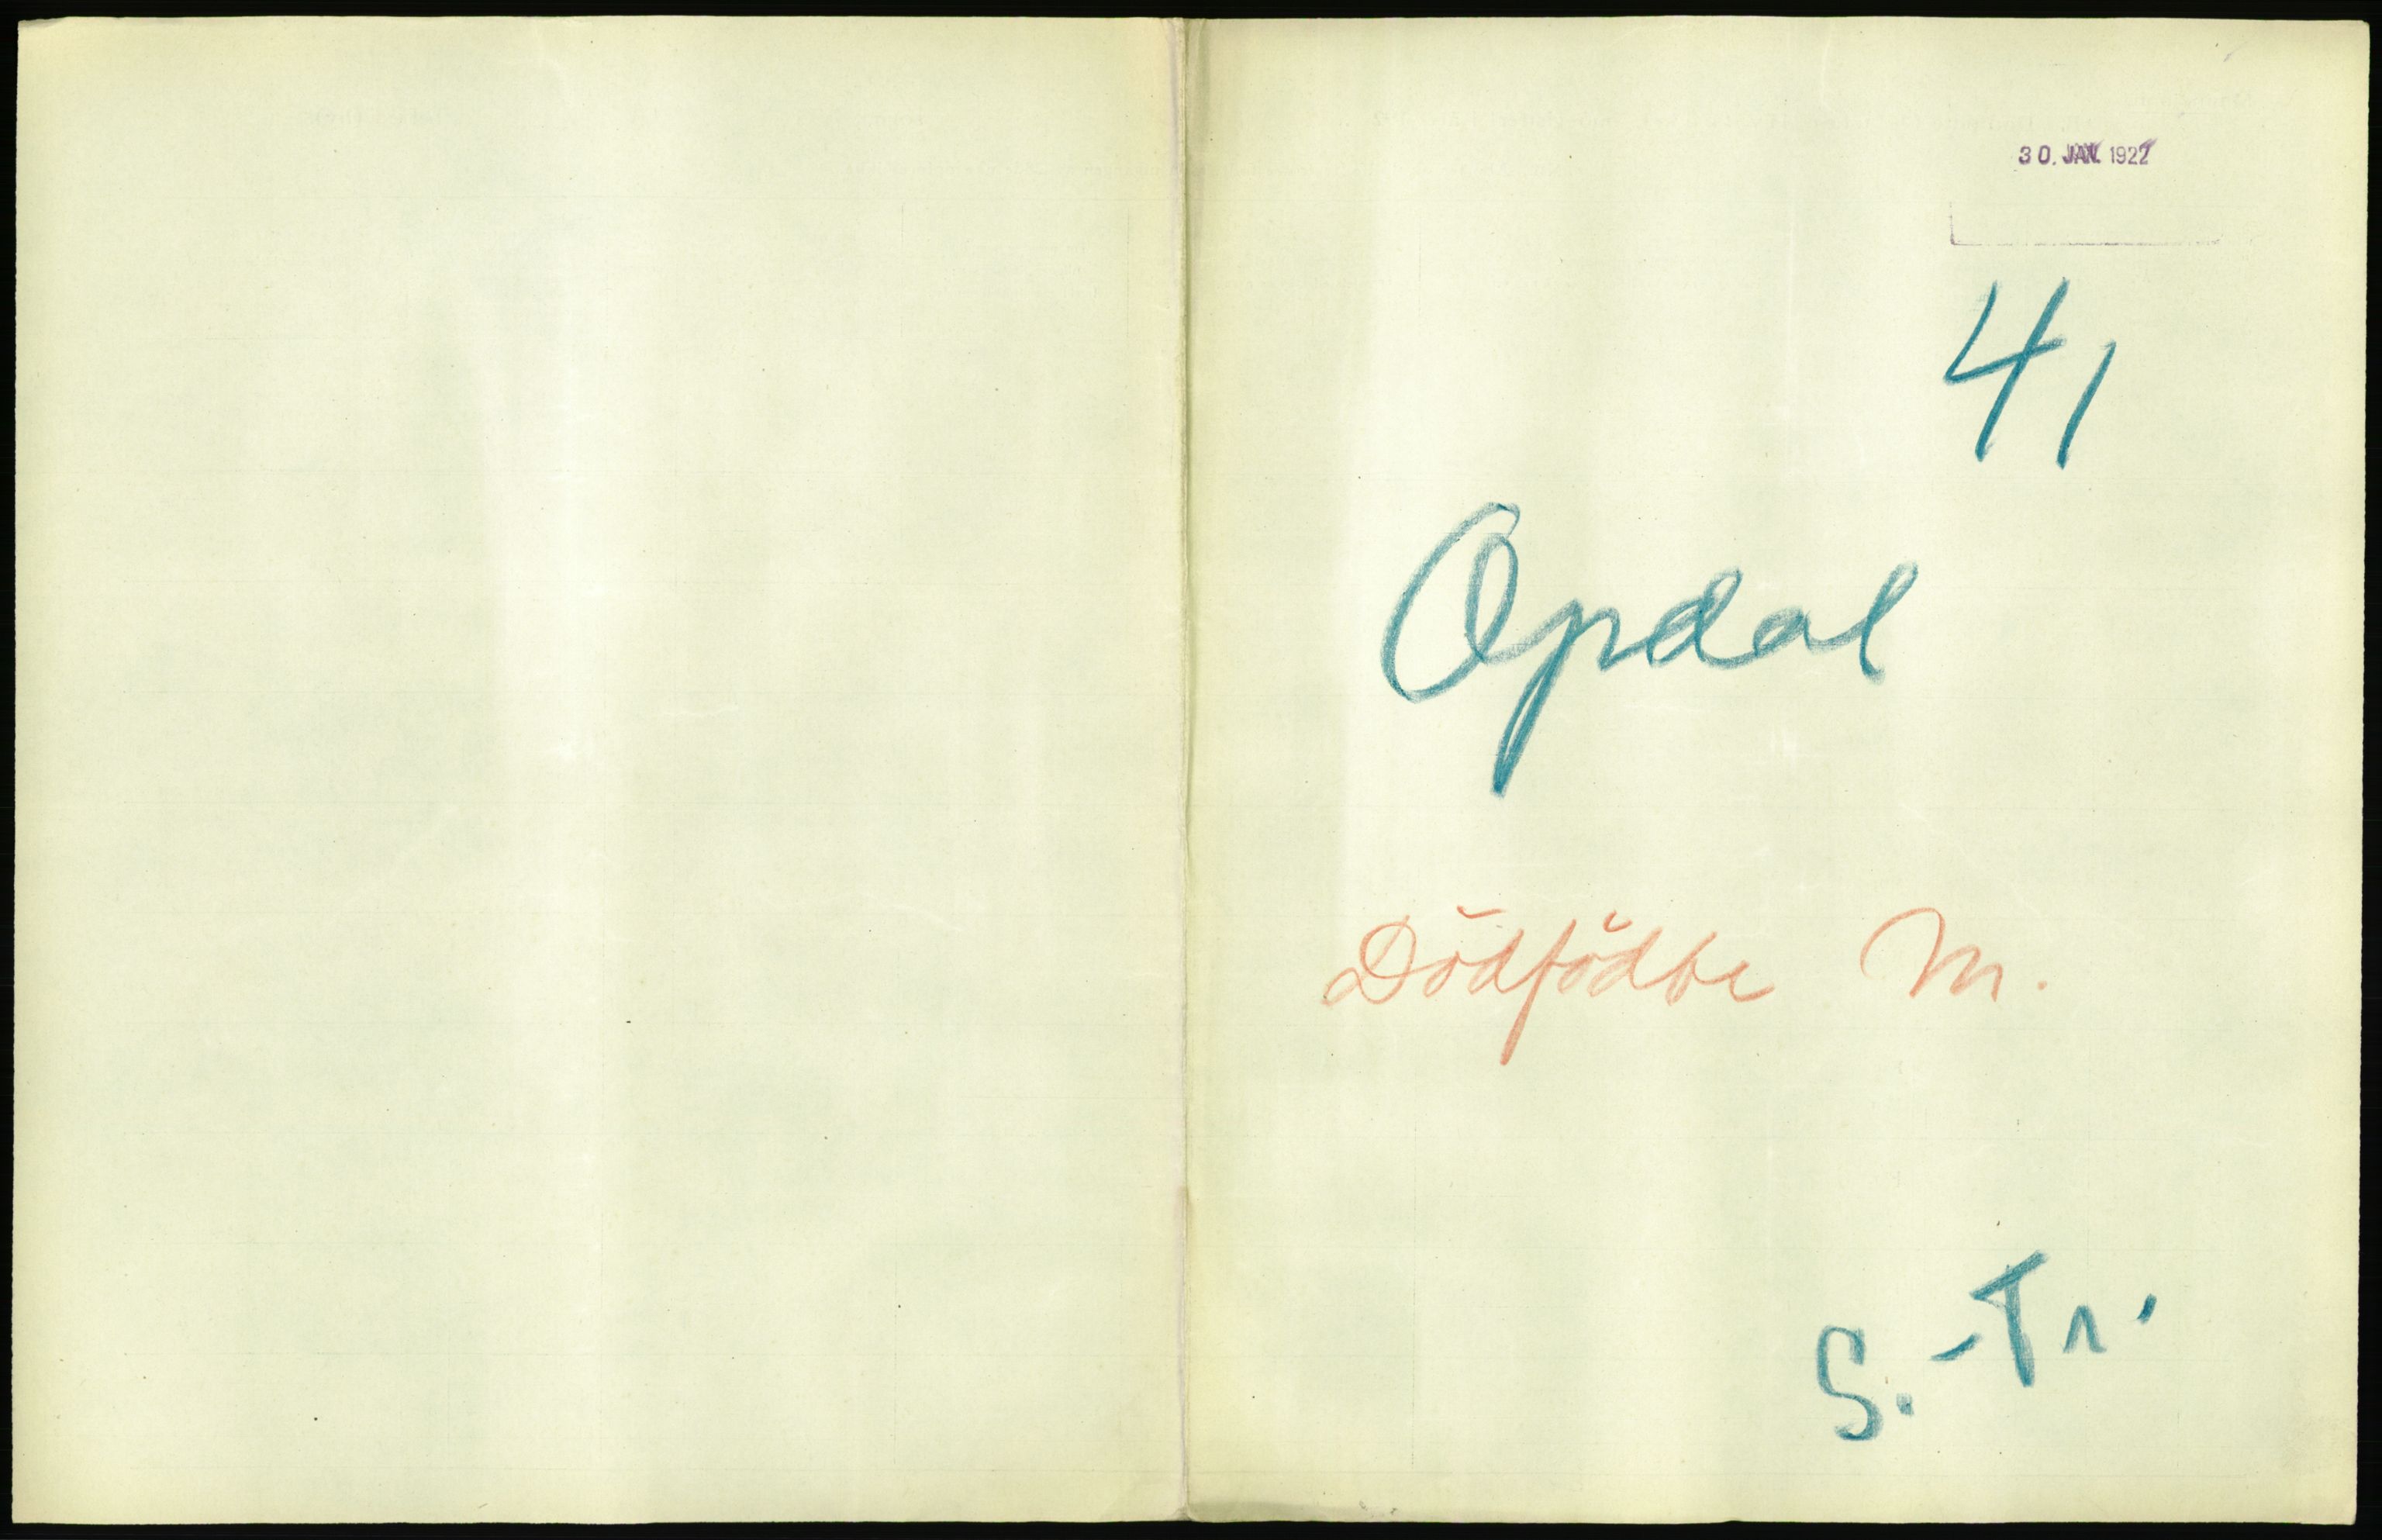 30. JAN. 1922
41
Opdal
Dödfödte M.
S.-Tr.